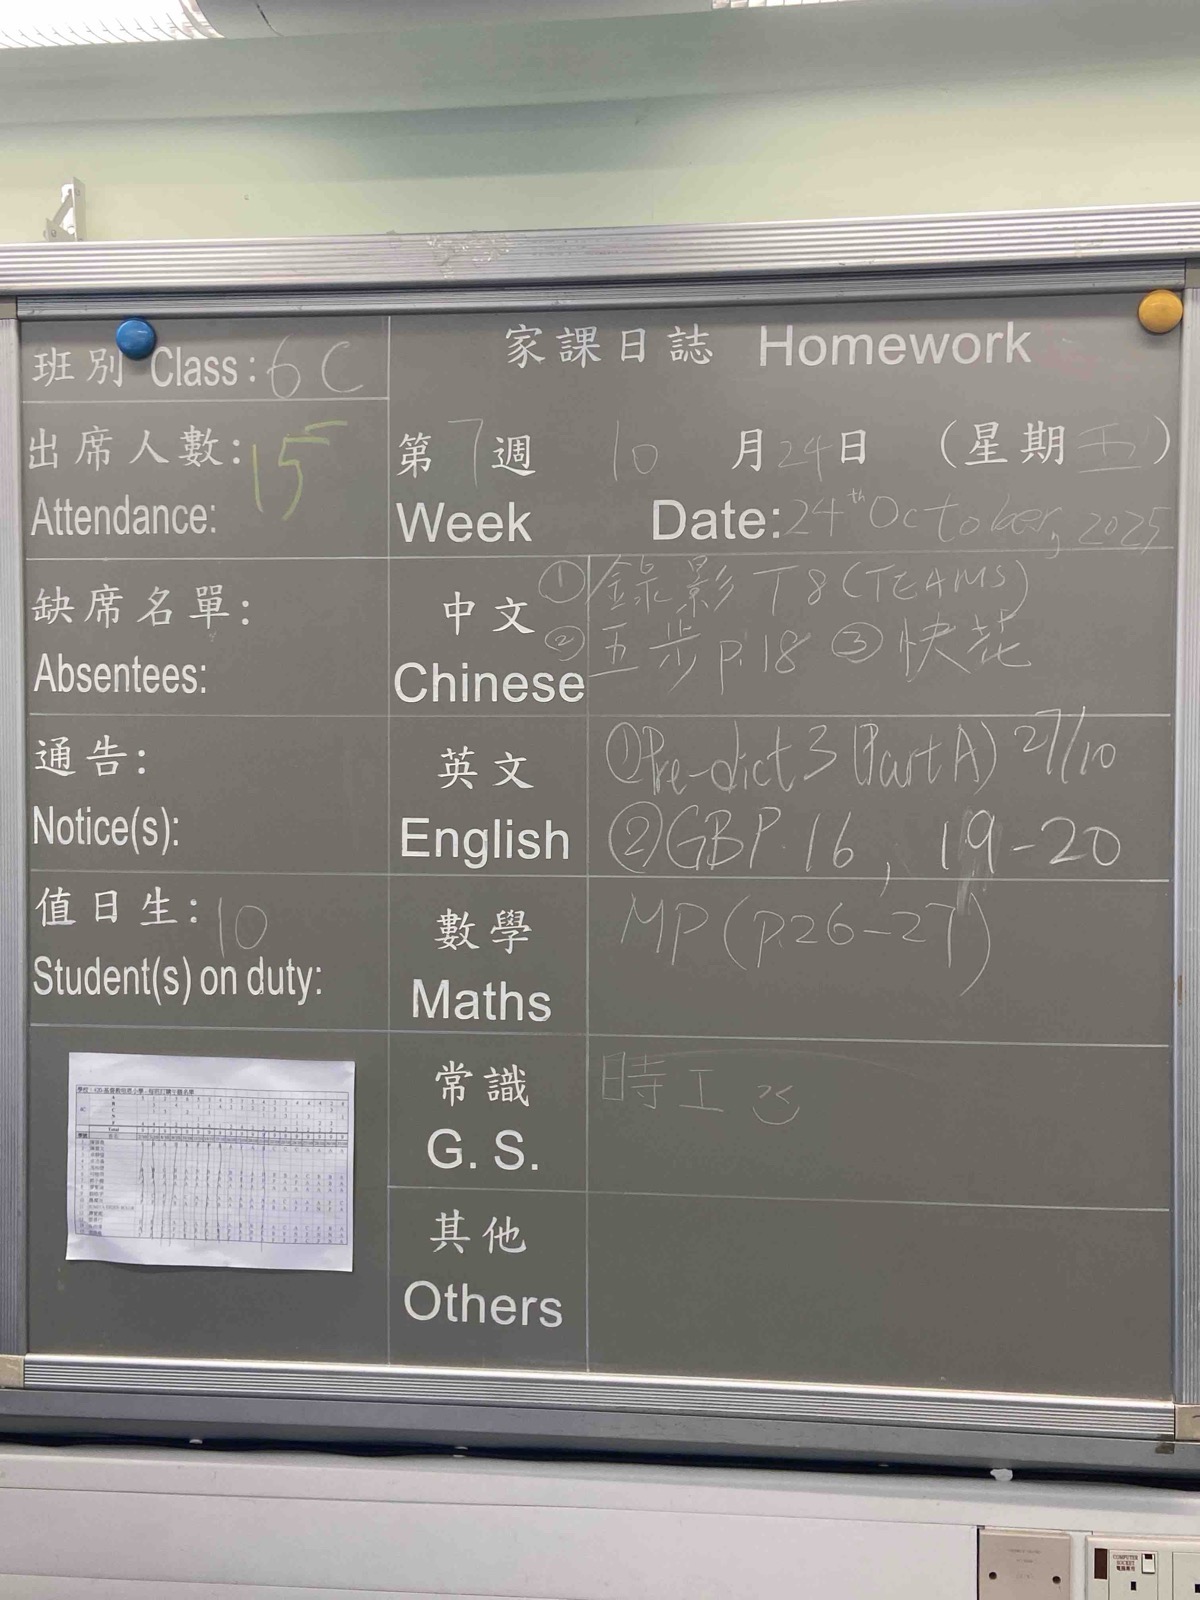 班別 Class: 6C
家課日誌 Homework
出席人數: 15
Attendance:
第 7 週 10 月 24 日 (星期 五)
Week Date: 24th October, 2025
缺席名單:
Absentees:
中文
Chinese
① 錄影 T8 (TEAMS)
② 五步 p.18 ③ 快花
通告:
Notice(s):
英文
English
① Pre-dict 3 (Part A) 27/10
② GB P.16, 19-20
值日生: 10
Student(s) on duty:
數學
Maths
MP (p.26-27)
常識
G. S.
時工
其他
Others
Total
COMPUTER
SOCKET
電腦專用